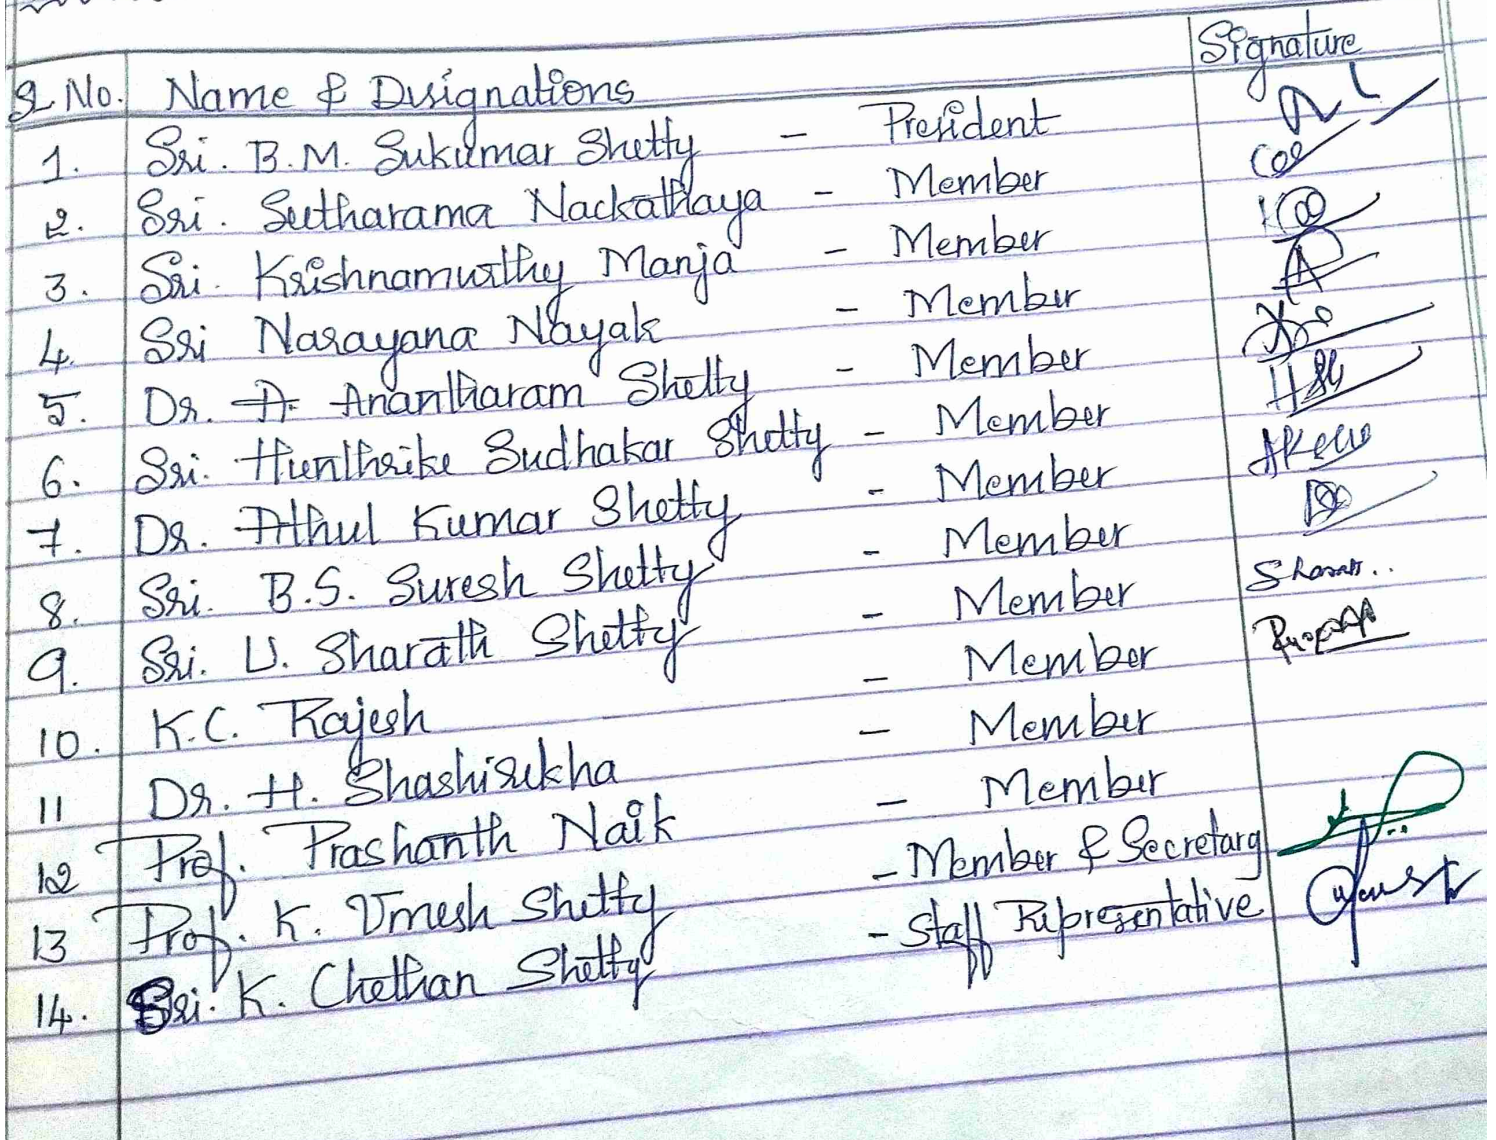 Sl. No. Name & Dusignations Signature
1. Sri. B.M. Sukumar Shetty - President
2. Sri. Seetharama Nackathaya - Member
3. Sri. Krishnamurthy Manja - Member
4. Sri Narayana Nayak - Member
5. Dr. A. Anantharam Shetty - Member
6. Sri. Hunthrike Sudhakar Shetty - Member
7. Dr. Athul Kumar Shetty - Member
8. Sri. B.S. Suresh Shetty - Member
9. Sri. U. Sharath Shetty - Member
10. K.C. Rajesh - Member
11 Dr. H. Shashirekha - Member
12 Prof. Prashanth Naik - Member
13 Prof. K. Umesh Shetty - Member & Secretary
14. Sri. K. Chethan Shetty - Staff Representative